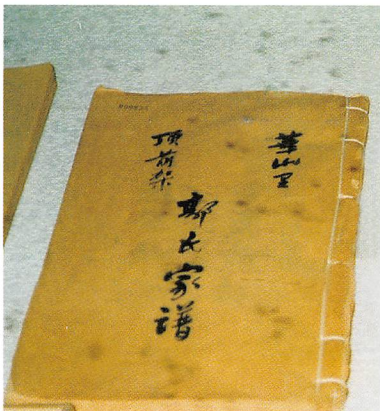 華山里
頂前架
郭氏家譜